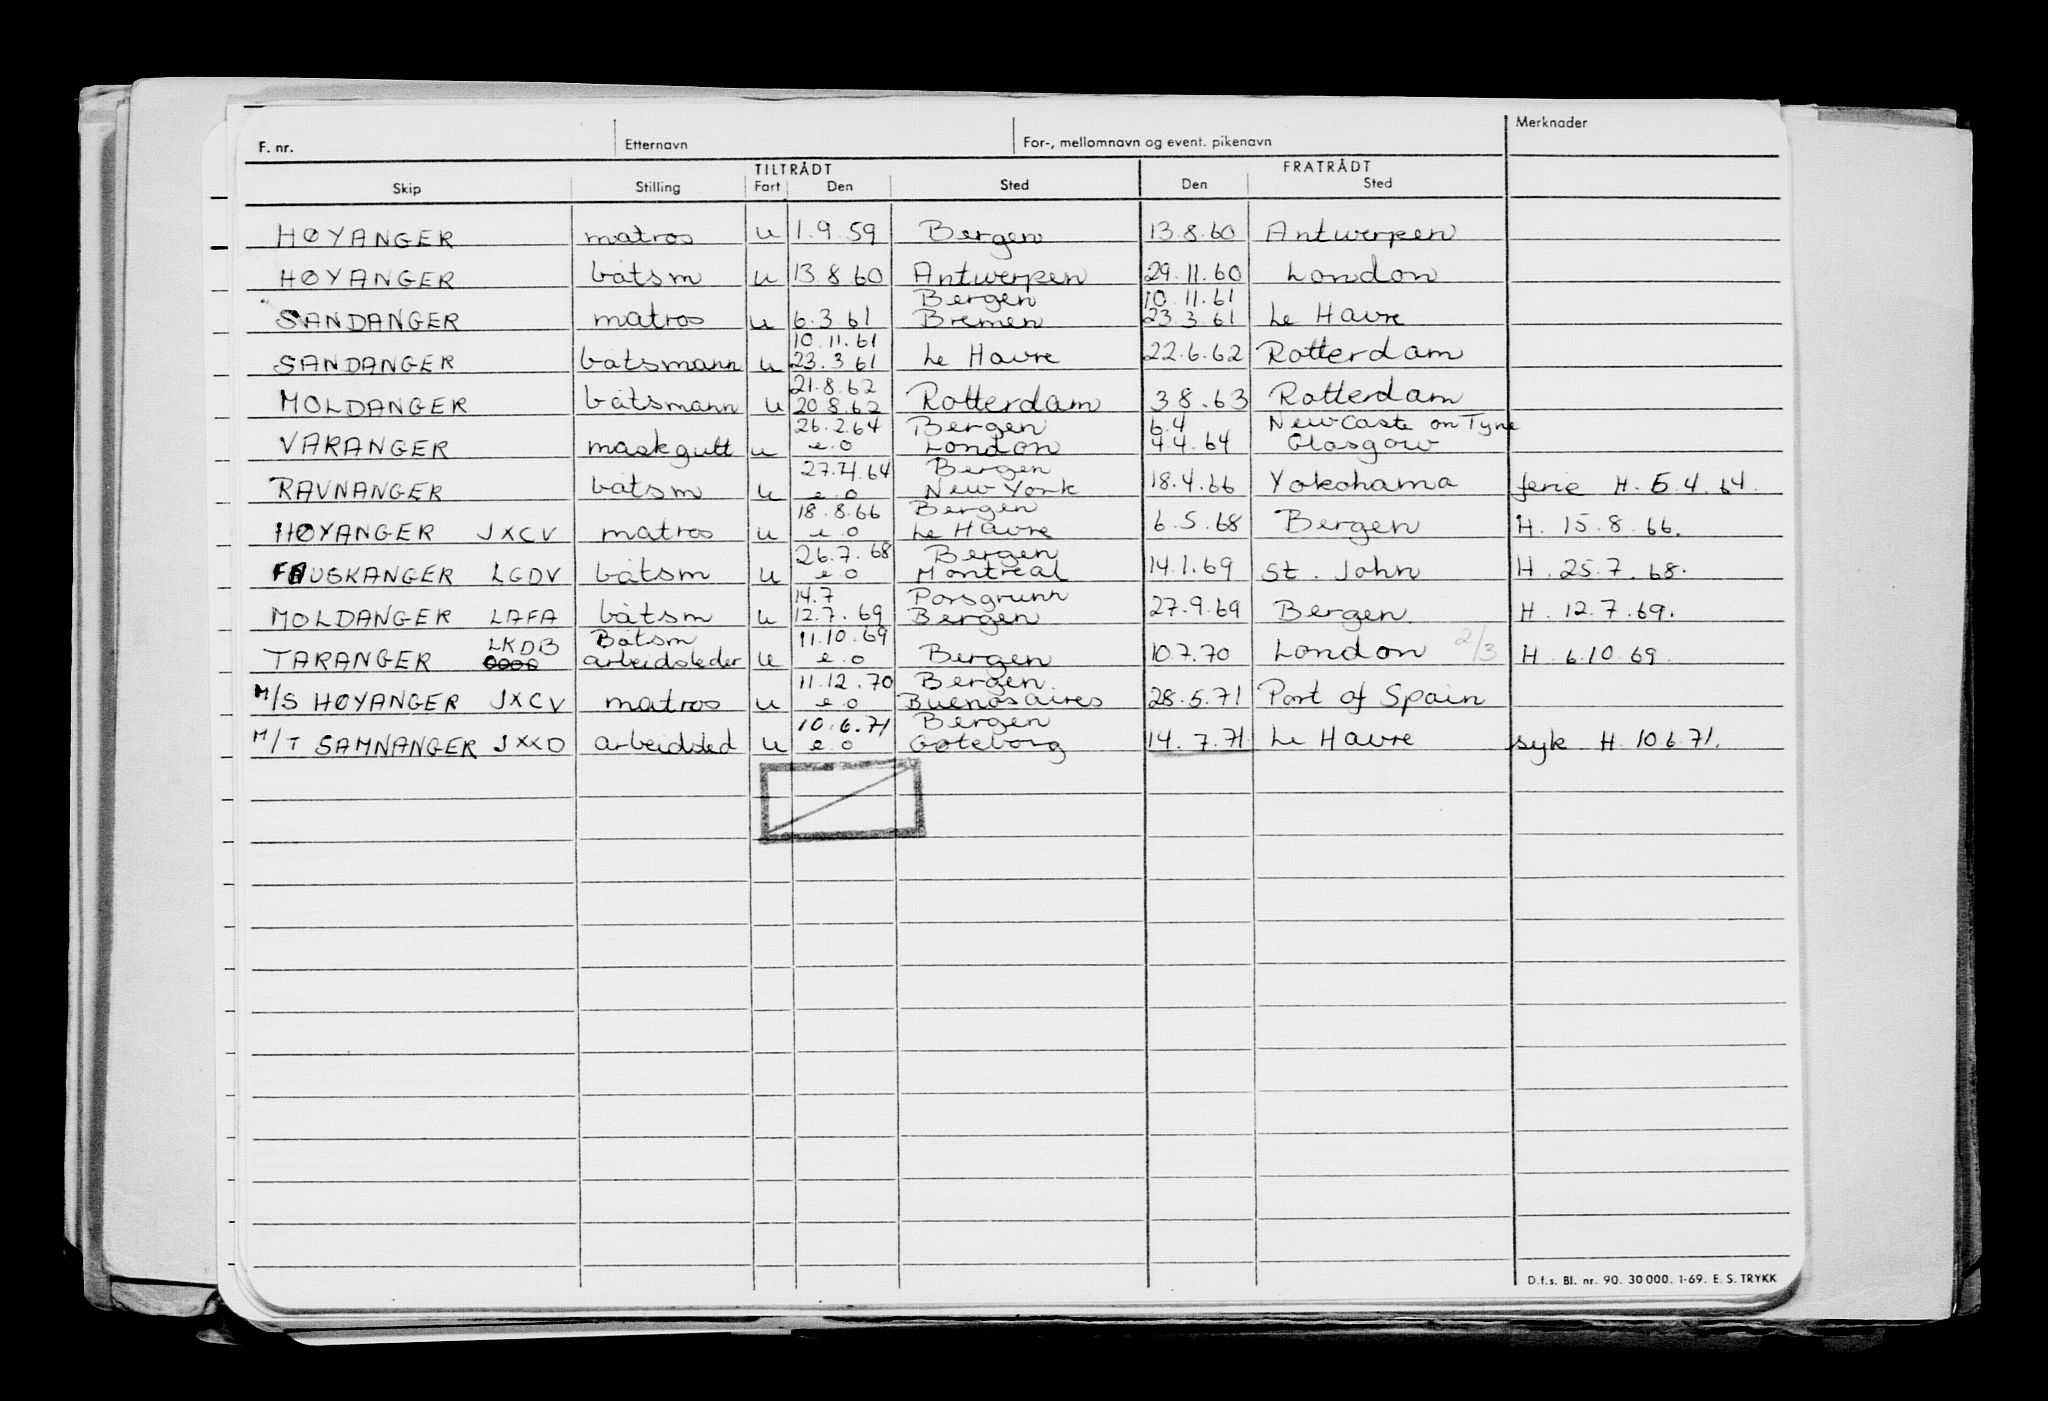 F. nr. Etternavn For-, mellomnavn og event. pikenavn Merknader
TILTRÅDT FRATRÅDT
Skip Stilling Fart Den Sted Den Sted
HØYANGER matros u 1.9.59 Bergen 13.8.60 Antwerpen
HØYANGER båtsm u 13.8.60 Antwerpen 29.11.60 London
Bergen 10.11.61
SANDANGER matros u 6.3.61 Bremen 23.3.61 Le Havre
10.11.61
SANDANGER båtsmann u 23.3.61 Le Havre 22.6.62 Rotterdam
21.8.62
MOLDANGER båtsmann u 20.8.62 Rotterdam 3.8.63 Rotterdam
26.2.64 Bergen 6.4 NewCaste on Tyne
VARANGER maskgutt u e.o London 4.4.64 Glasgow
27.4.64 Bergen
RAVNANGER båtsm u e.o New York 18.4.66 Yokohama ferie H. 5.4.64.
18.8.66 Bergen
HØYANGER JXCV matros u e.o Le Havre 6.5.68 Bergen H. 15.8.66.
26.7.68 Bergen
FAUSKANGER LGDV båtsm u e.o Montreal 14.1.69 St. John H. 25.7.68.
14.7 Porsgrunn
MOLDANGER LAFA båtsm u 12.7.69 Bergen 27.9.69 Bergen. H. 12.7.69.
LKDB Båtsm 11.10.69
TARANGER arbeidsleder u e.o Bergen 10.7.70 London 2/3 H. 6.10.69.
11.12.70 Bergen
M/S HØYANGER JXCV matros u e.o Buenos aires 28.5.71 Port of Spain
10.6.71 Bergen
M/T SAMNANGER JXXD arbeidsled u e.o Gøteborg 14.7.71 Le Havre syk H. 10.6.71.
D.f.s. Bl. nr. 90. 30 000. 1-69. E. S. TRYKK